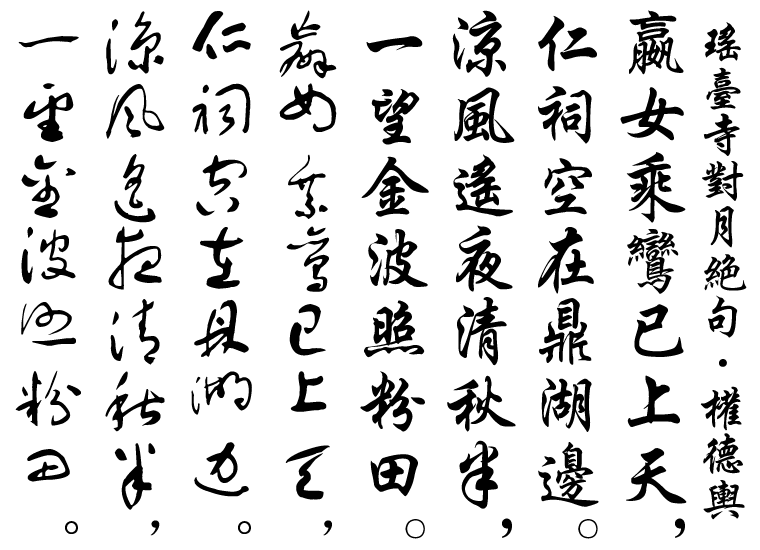 瑤臺寺對月絕句・權德輿
嬴女乘鸞已上天，
仁祠空在鼎湖邊。
涼風遙夜清秋半，
一望金波照粉田。
嬴女乘鸞已上天，
仁祠空在鼎湖邊。
涼風遙夜清秋半，
一望金波照粉田。